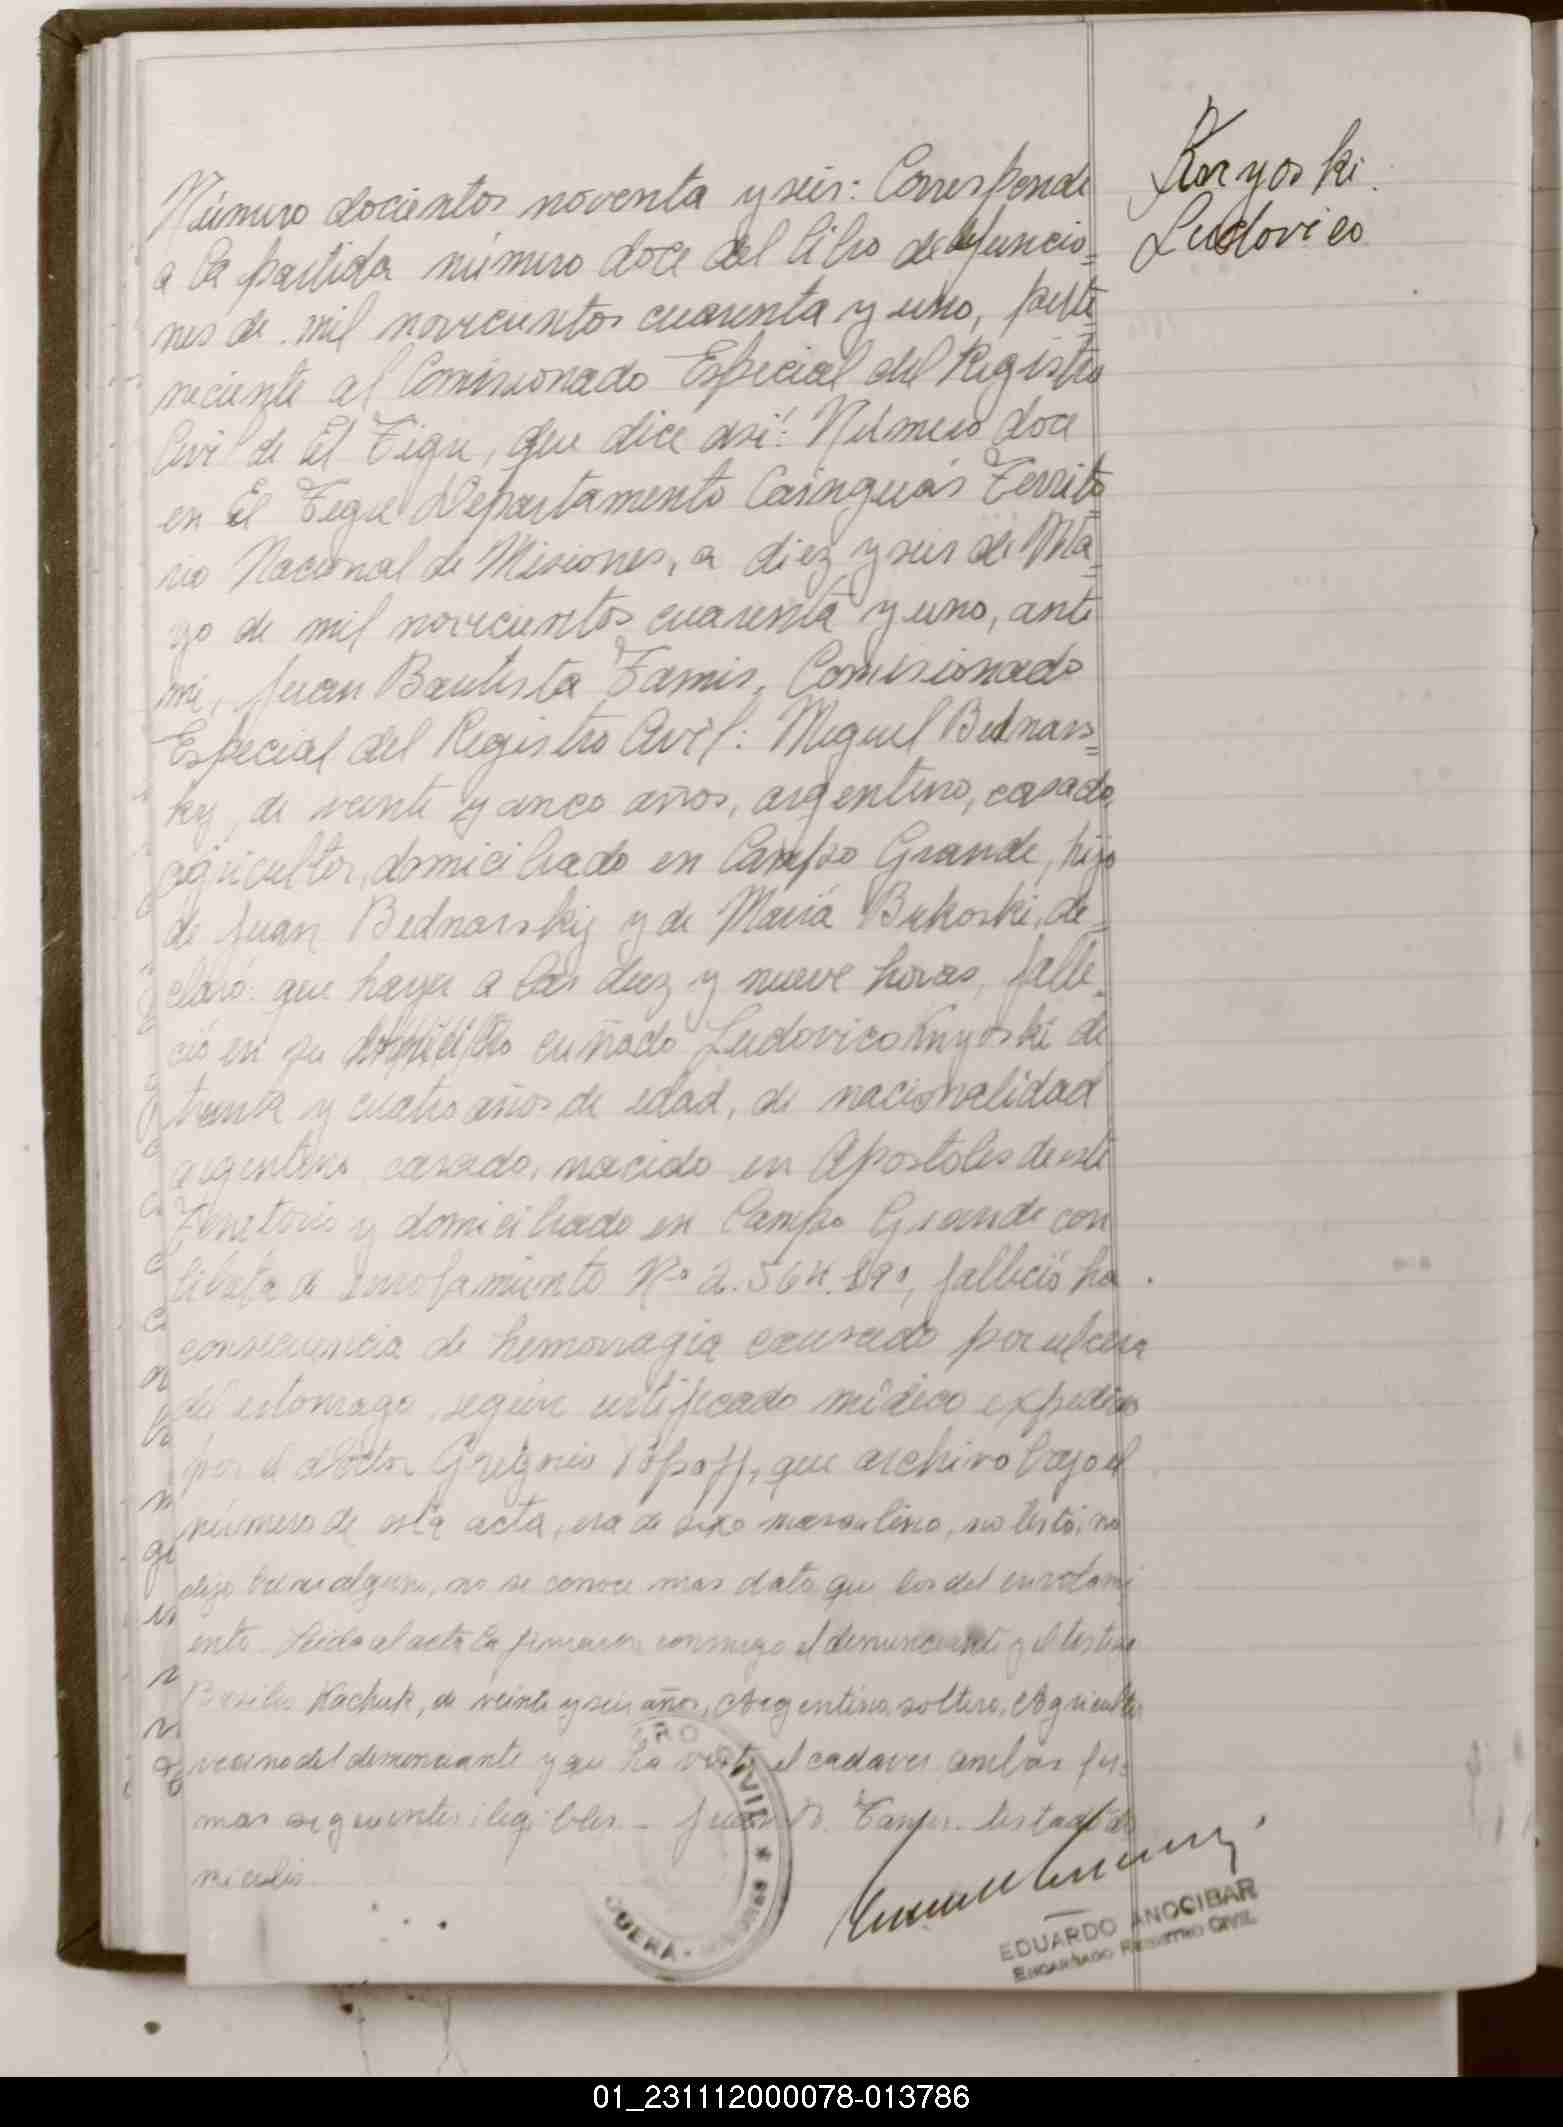 Número docientos noventa y seis: Corresponde
a la partida número doce del libro de defuncio=
nes de mil novecientos cuarenta y uno, perte=
neciente al Comisionado Especial del Registro
Civil de El Tigre, que dice así: Número doce
en El Tigre Departamento Cainguás Territo=
rio Nacional de Misiones, a diez y seis de Ma=
yo de mil novecientos cuarenta y uno, ante
mi, Juan Bautista Comisionado
Especial del Registro Civil: Miguel Bednars=
ky, de veinte y cinco años, argentino, casado,
agricultor, domiciliado en Campo Grande, hijo
de Juan Bednarskiy y de María Bukoski, de=
claró: que hayer a las diez y nueve horas, falle=
ció en su domicilio cuñado Ludovico Knyoski de
treinta y cuatro años de edad, de nacionalidad
argentino, casado, nacido en Apostoles de este
Territorio y domiciliado en Campo Grande con
libreta de enrolamiento Nº 2.564. falleció ha
consecuencia de hemorragia causado por ulcera
del estomago, según certificado médico expedido
por el doctor Gregorio Popoff, que archivo bajo el
número de esta acta, era de sexo masculino, no testó, no
dejo bienes alguno, no se conoce mas dato que los del enrolami
ento. Leida el acta la firmaron conmigo el denunciante y el testigo
Basilio Kachuk, de veinte y seis años, Argentino, soltero, Agricultor
vecino del denunciante y que ha visto el cadaver, ambas fir=
mas siguientes ilegibles.- Juan B. testado do
micilio.
Knyoski
Ludovico
RO CIVIL *
MISIONES
EDUARDO ANOCIBAR
ENCARGADO REGISTRO CIVIL
01_231112000078-013786